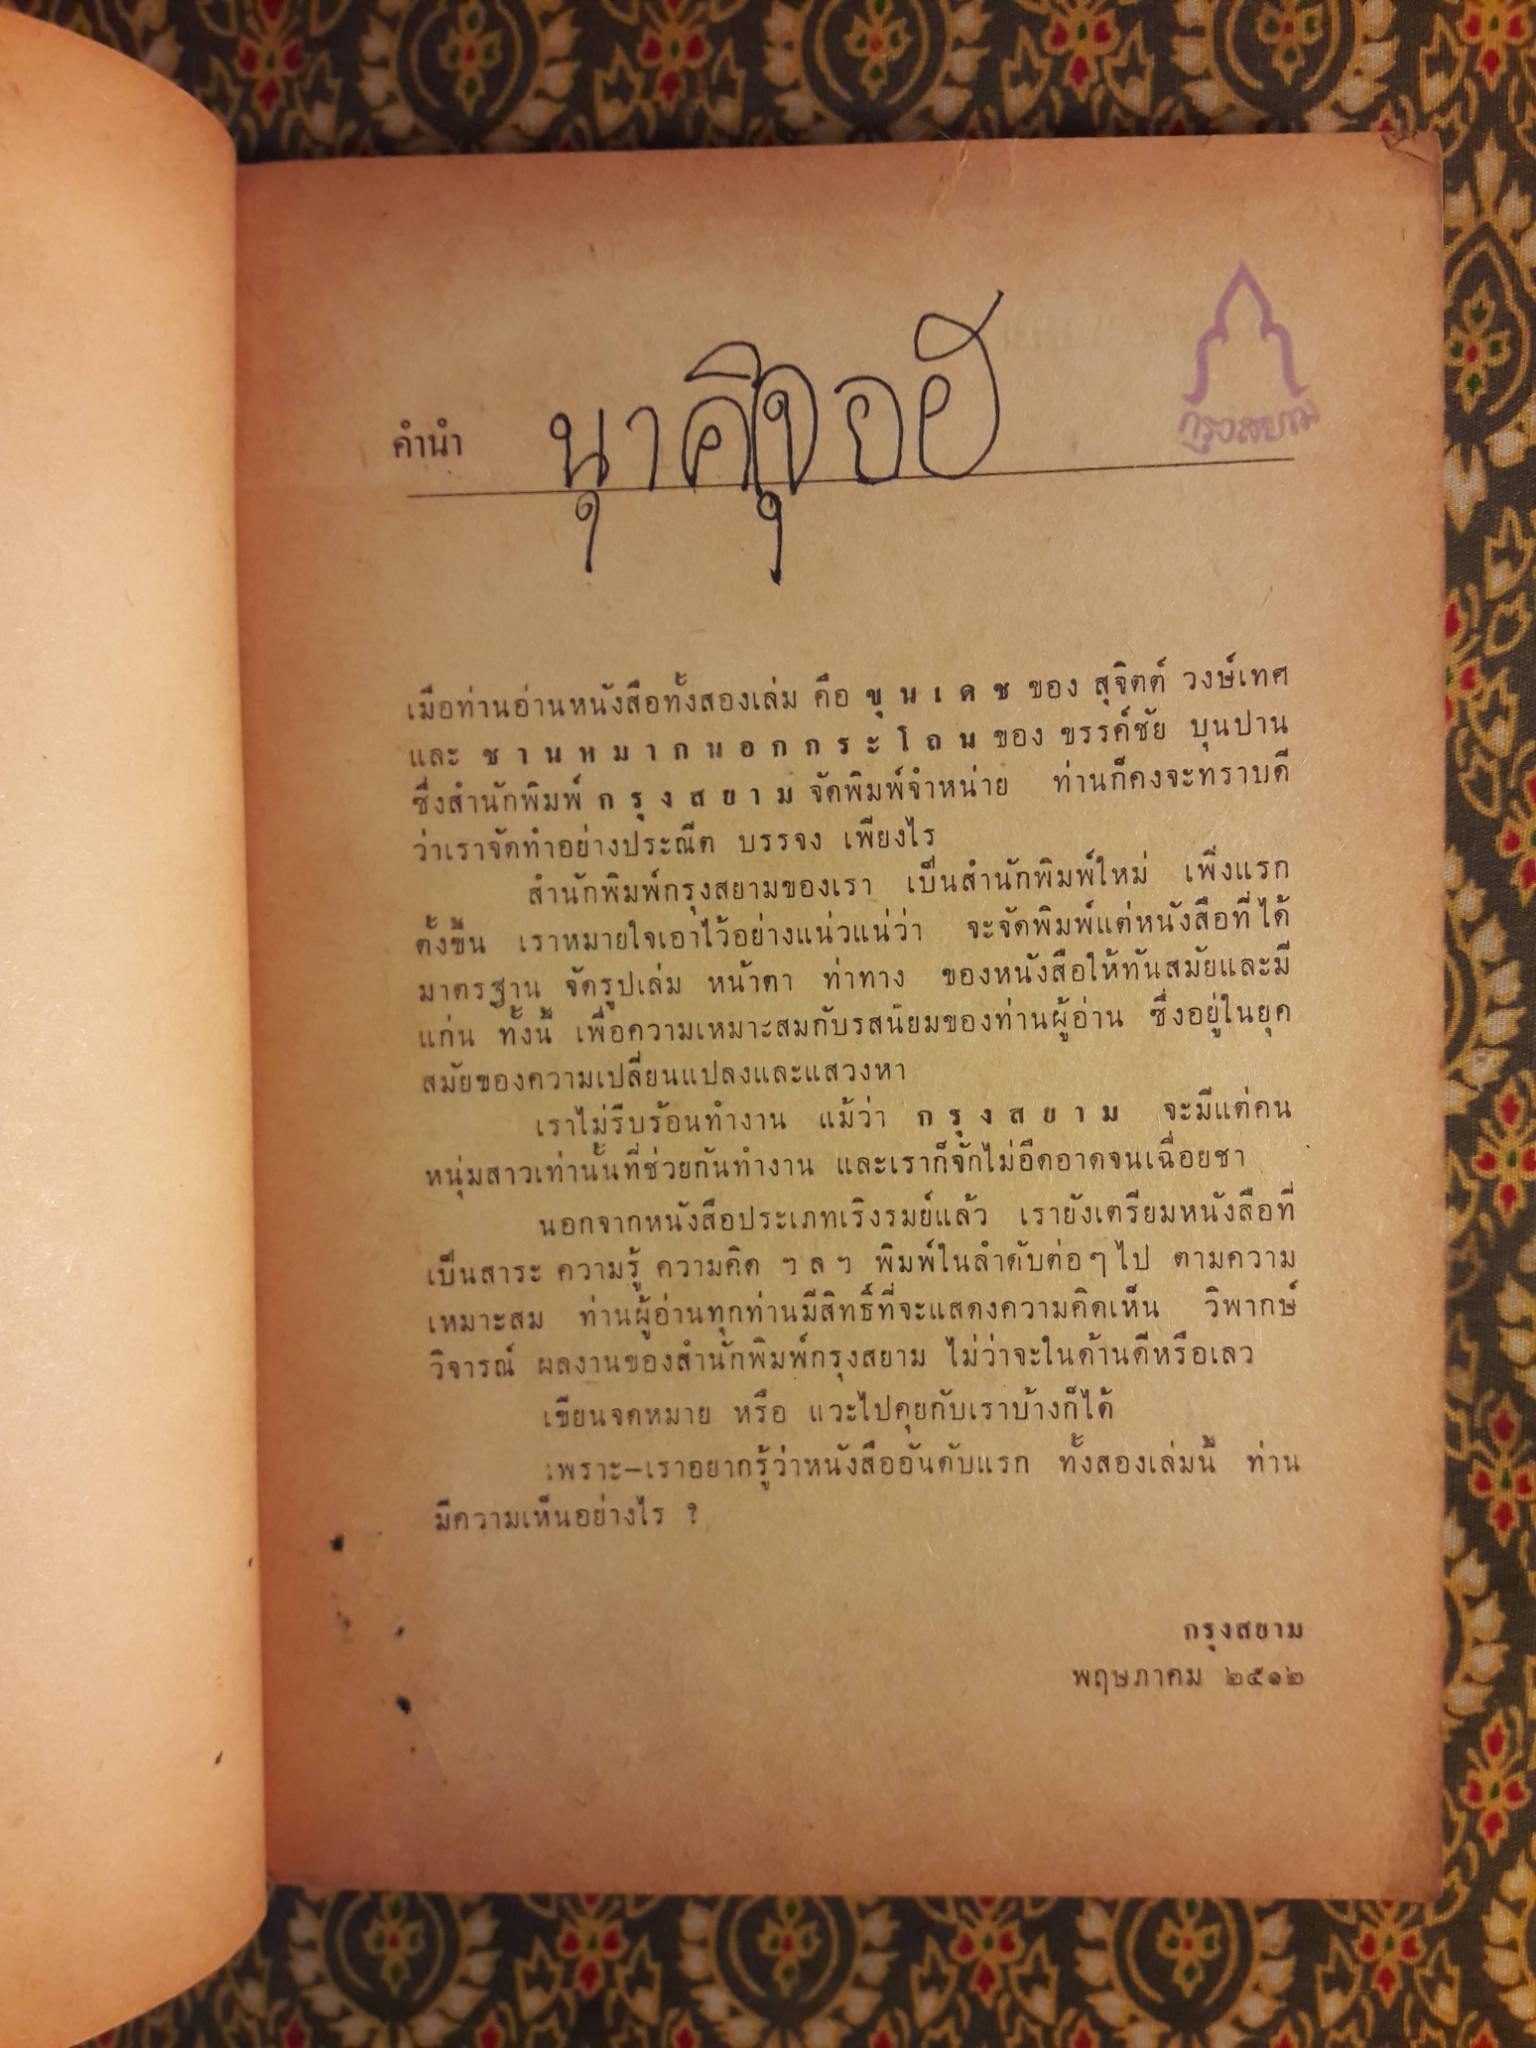 คำนำ
กรุงสยาม
เมื่อท่านอ่านหนังสือทั้งสองเล่ม คือ ขุนเดช ของ สุจิตต์ วงษ์เทศ
และ ชานหมากนอกกระโถน ของ ขรรค์ชัย บุนปาน
ซึ่งสำนักพิมพ์ กรุงสยาม จัดพิมพ์จำหน่าย ท่านก็คงจะทราบดี
ว่าเราจัดทำอย่างประณีต บรรจง เพียงไร
สำนักพิมพ์กรุงสยามของเรา เป็นสำนักพิมพ์ใหม่ เพิ่งแรก
ตั้งขึ้น เราหมายใจเอาไว้อย่างแน่วแน่ว่า จะจัดพิมพ์แต่หนังสือที่ได้
มาตรฐาน จัดรูปเล่ม หน้าตา ท่าทาง ของหนังสือให้ทันสมัยและมี
แก่น ทั้งนี้ เพื่อความเหมาะสมกับรสนิยมของท่านผู้อ่าน ซึ่งอยู่ในยุค
สมัยของความเปลี่ยนแปลงและแสวงหา
เราไม่รีบร้อนทำงาน แม้ว่า กรุงสยาม จะมีแต่คน
หนุ่มสาวเท่านั้นที่ช่วยกันทำงาน และเราก็จักไม่อืดอาดจนเฉื่อยชา
นอกจากหนังสือประเภทเริงรมย์แล้ว เรายังเตรียมหนังสือที่
เป็นสาระ ความรู้ ความคิด ฯลฯ พิมพ์ในลำดับต่อๆ ไป ตามความ
เหมาะสม ท่านผู้อ่านทุกท่านมีสิทธิ์ที่จะแสดงความคิดเห็น วิพากษ์
วิจารณ์ ผลงานของสำนักพิมพ์กรุงสยาม ไม่ว่าจะในด้านดีหรือเลว
เขียนจดหมาย หรือ แวะไปคุยกับเราบ้างก็ได้
เพราะ-เราอยากรู้ว่าหนังสืออันดับแรก ทั้งสองเล่มนี้ ท่าน
มีความเห็นอย่างไร ?
กรุงสยาม
พฤษภาคม ๒๕๑๒